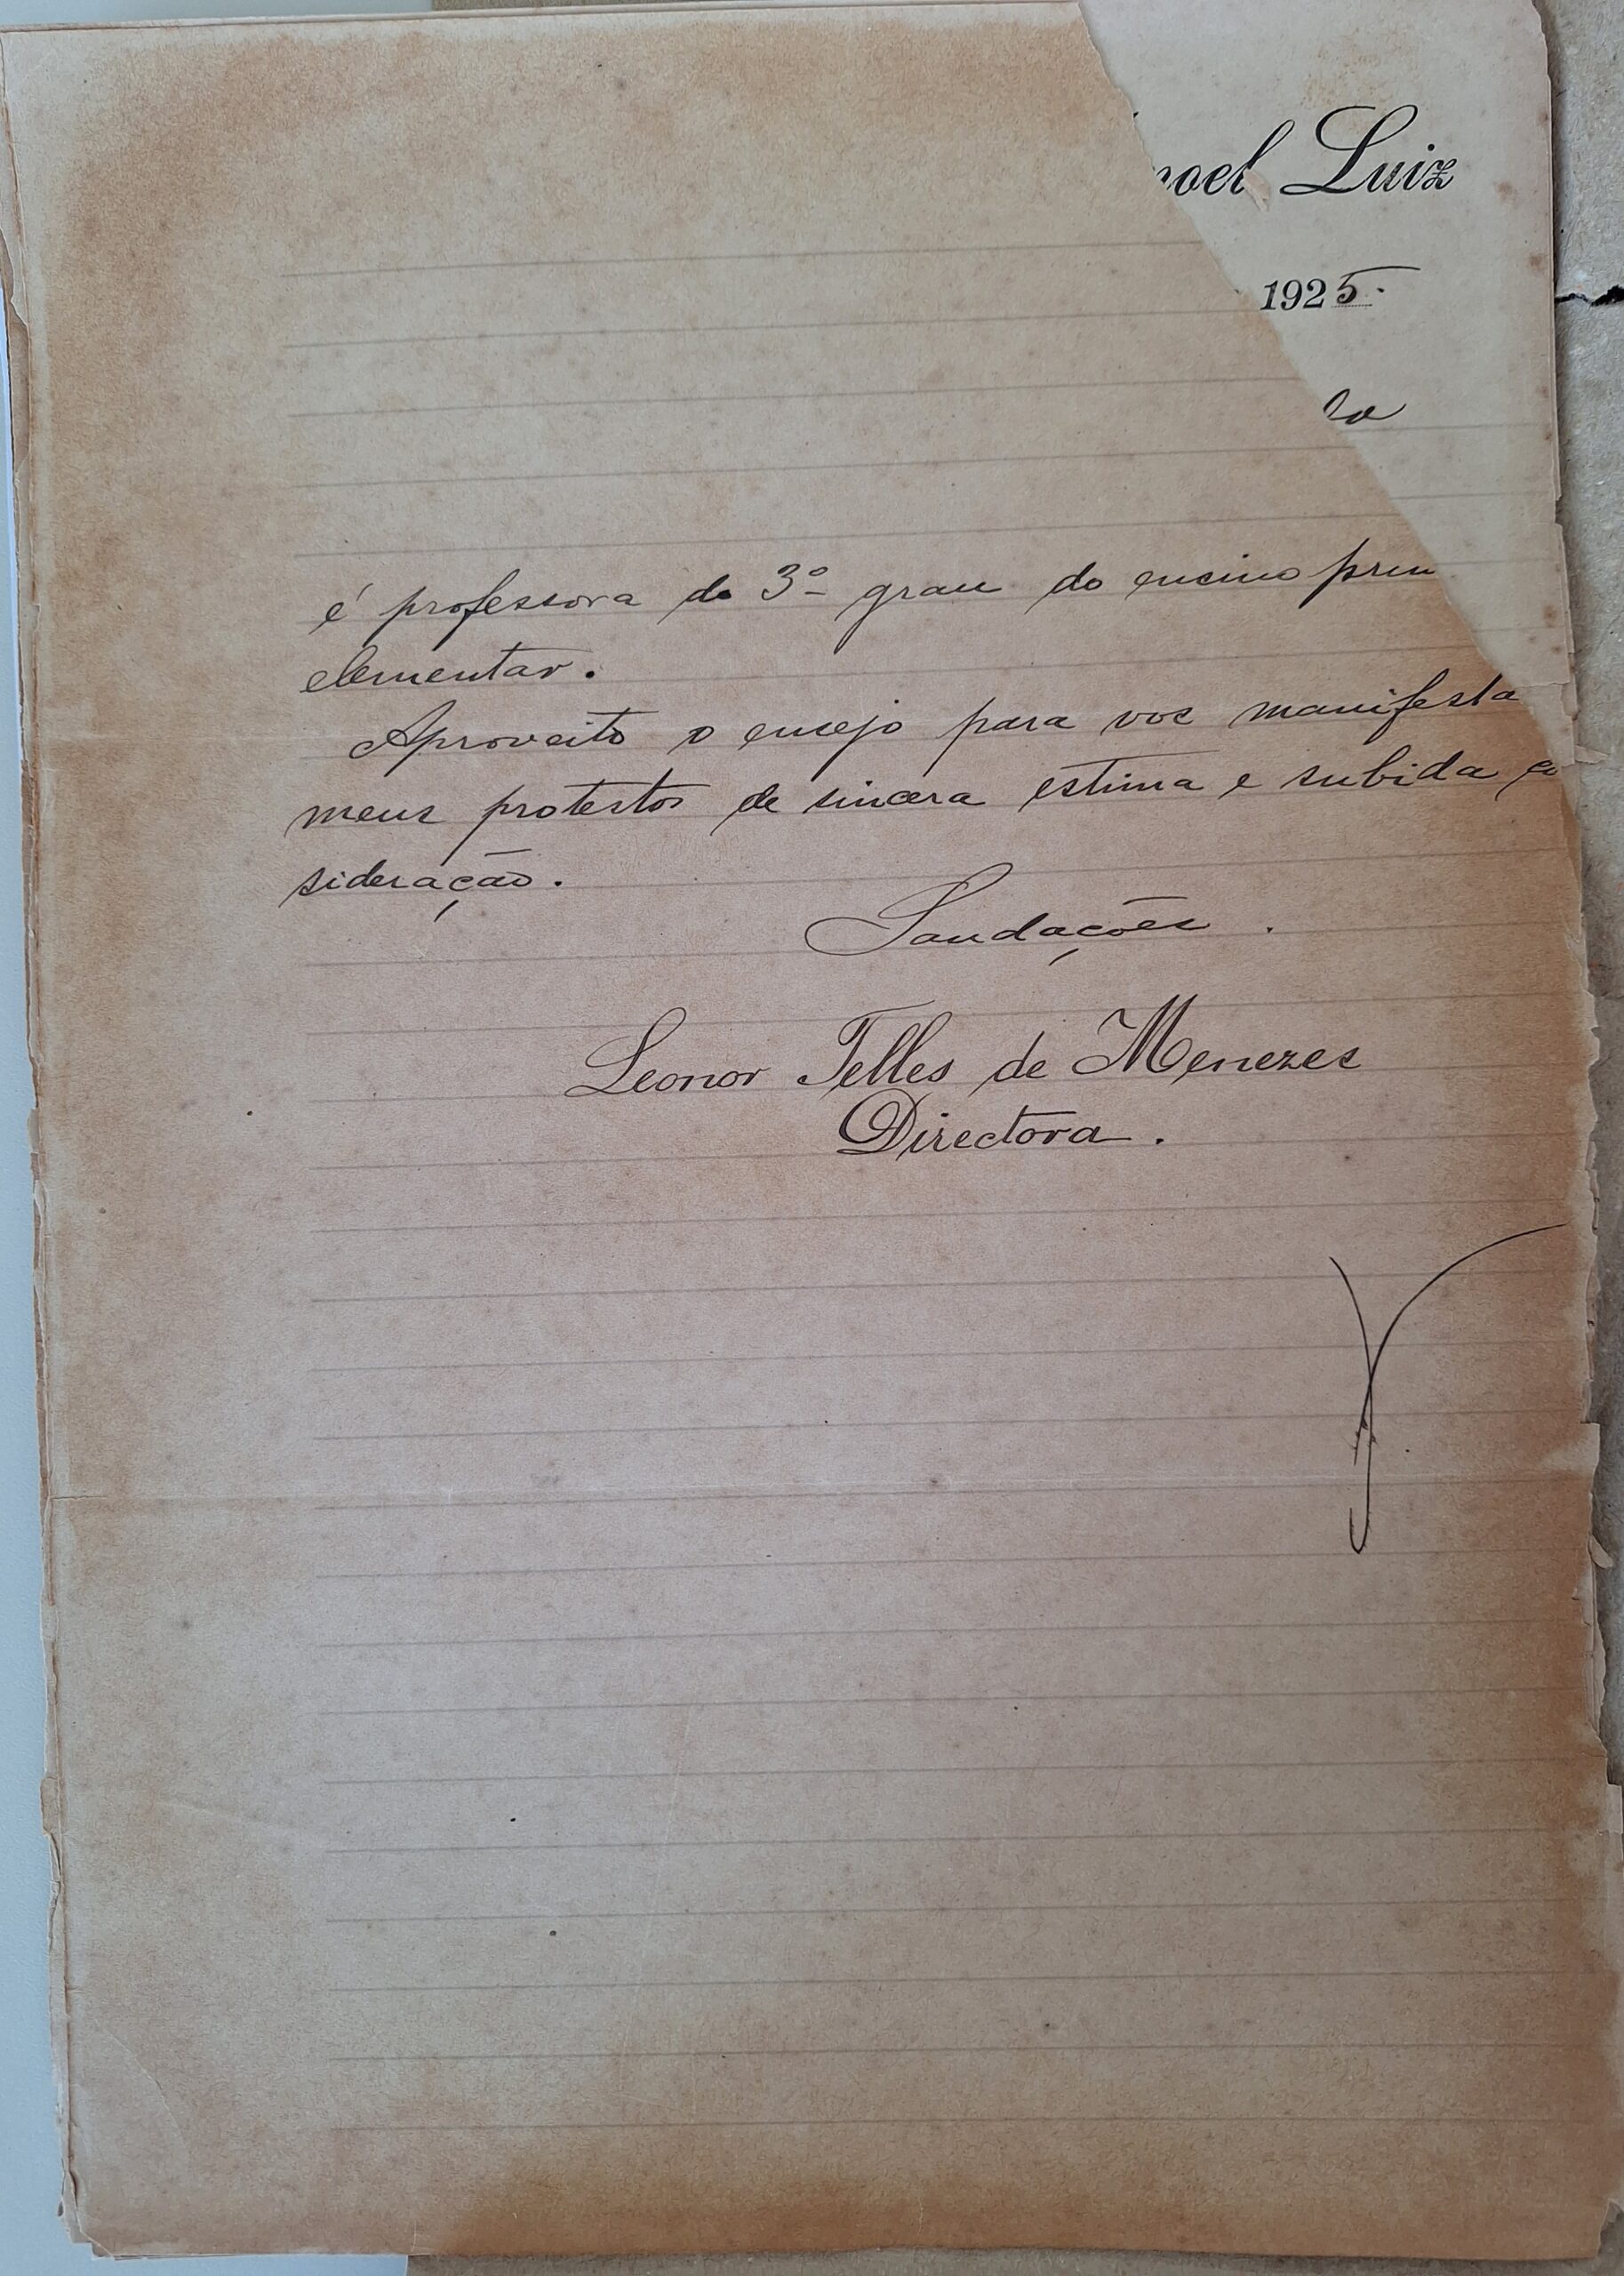 noel Luiz
1925.
é professora do 3º grau do ensino prim
elementar.
Aproveito o ensejo para vos manifesta
meus protestos de sincera estima e subida co
sideração.
Saudações.
Leonor Telles de Menezes
Directora.